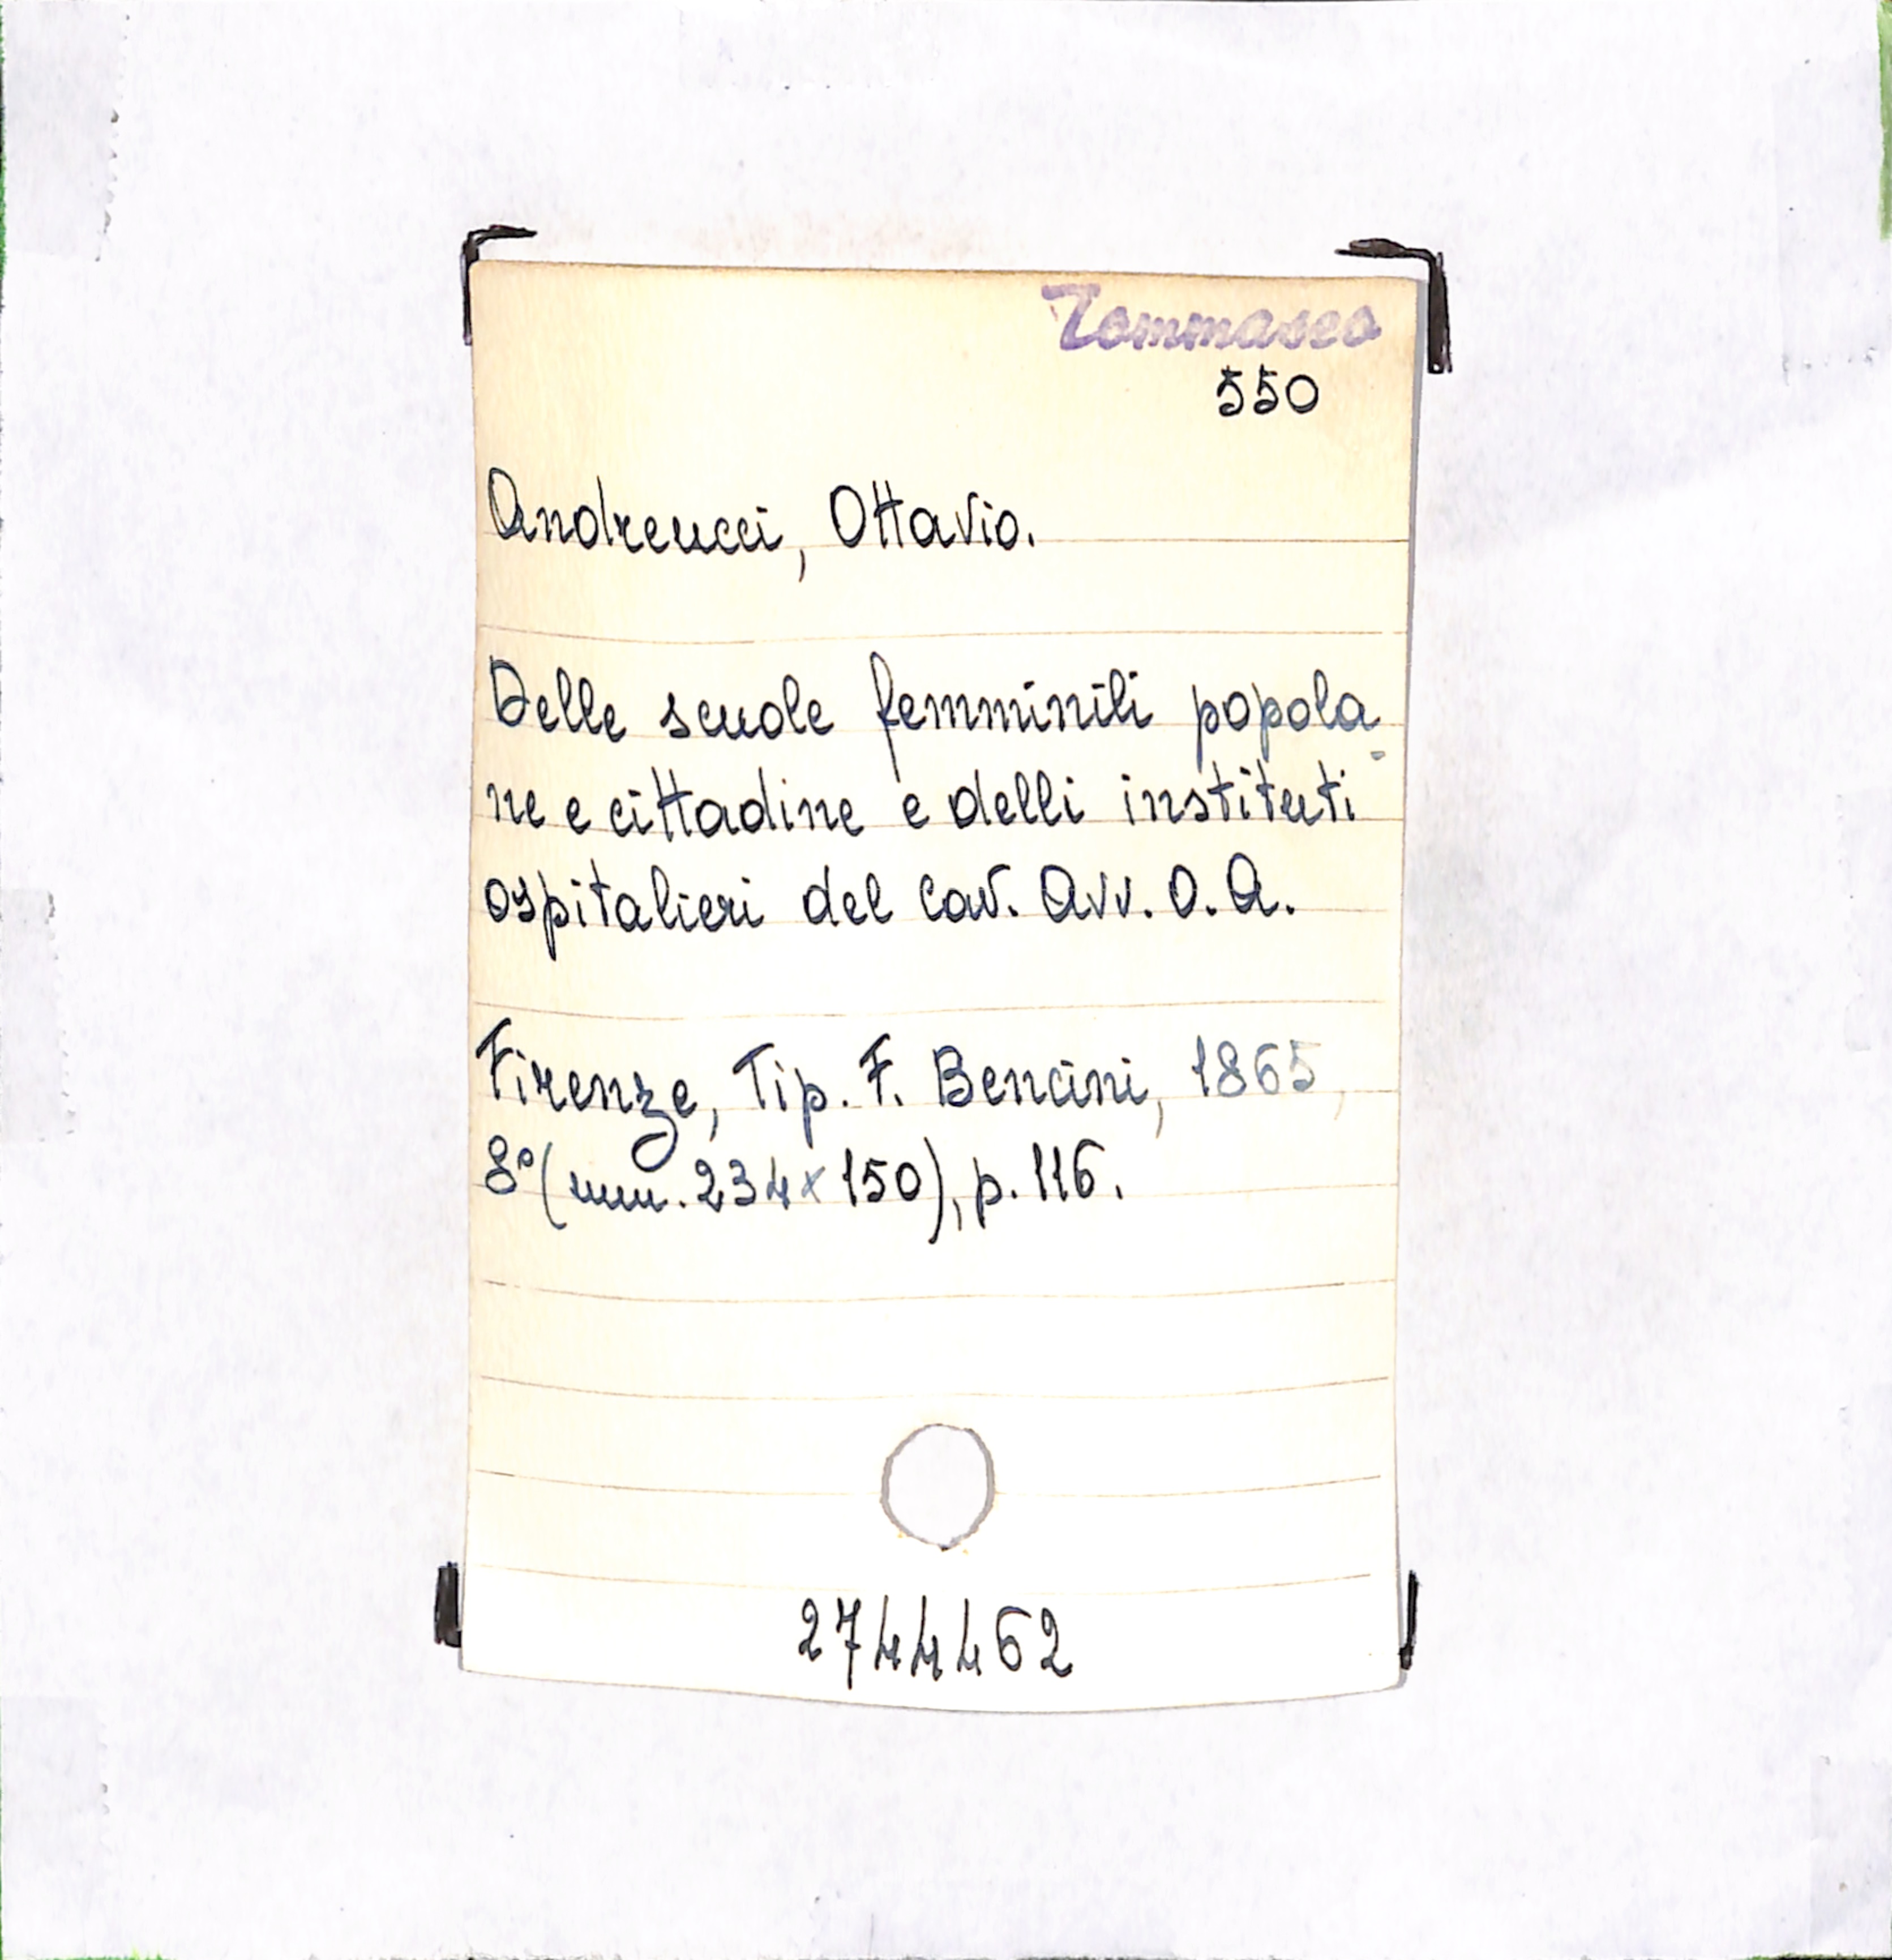 Tommaseo
550
Andreucci, Ottavio.
Delle scuole femminili popola-
ne e cittadine e delli instituti
ospitalieri del cav. Avv. O. A.
Firenze, Tip. F. Bencini, 1865,
8º (mm. 234x150), p. 116.
2744462